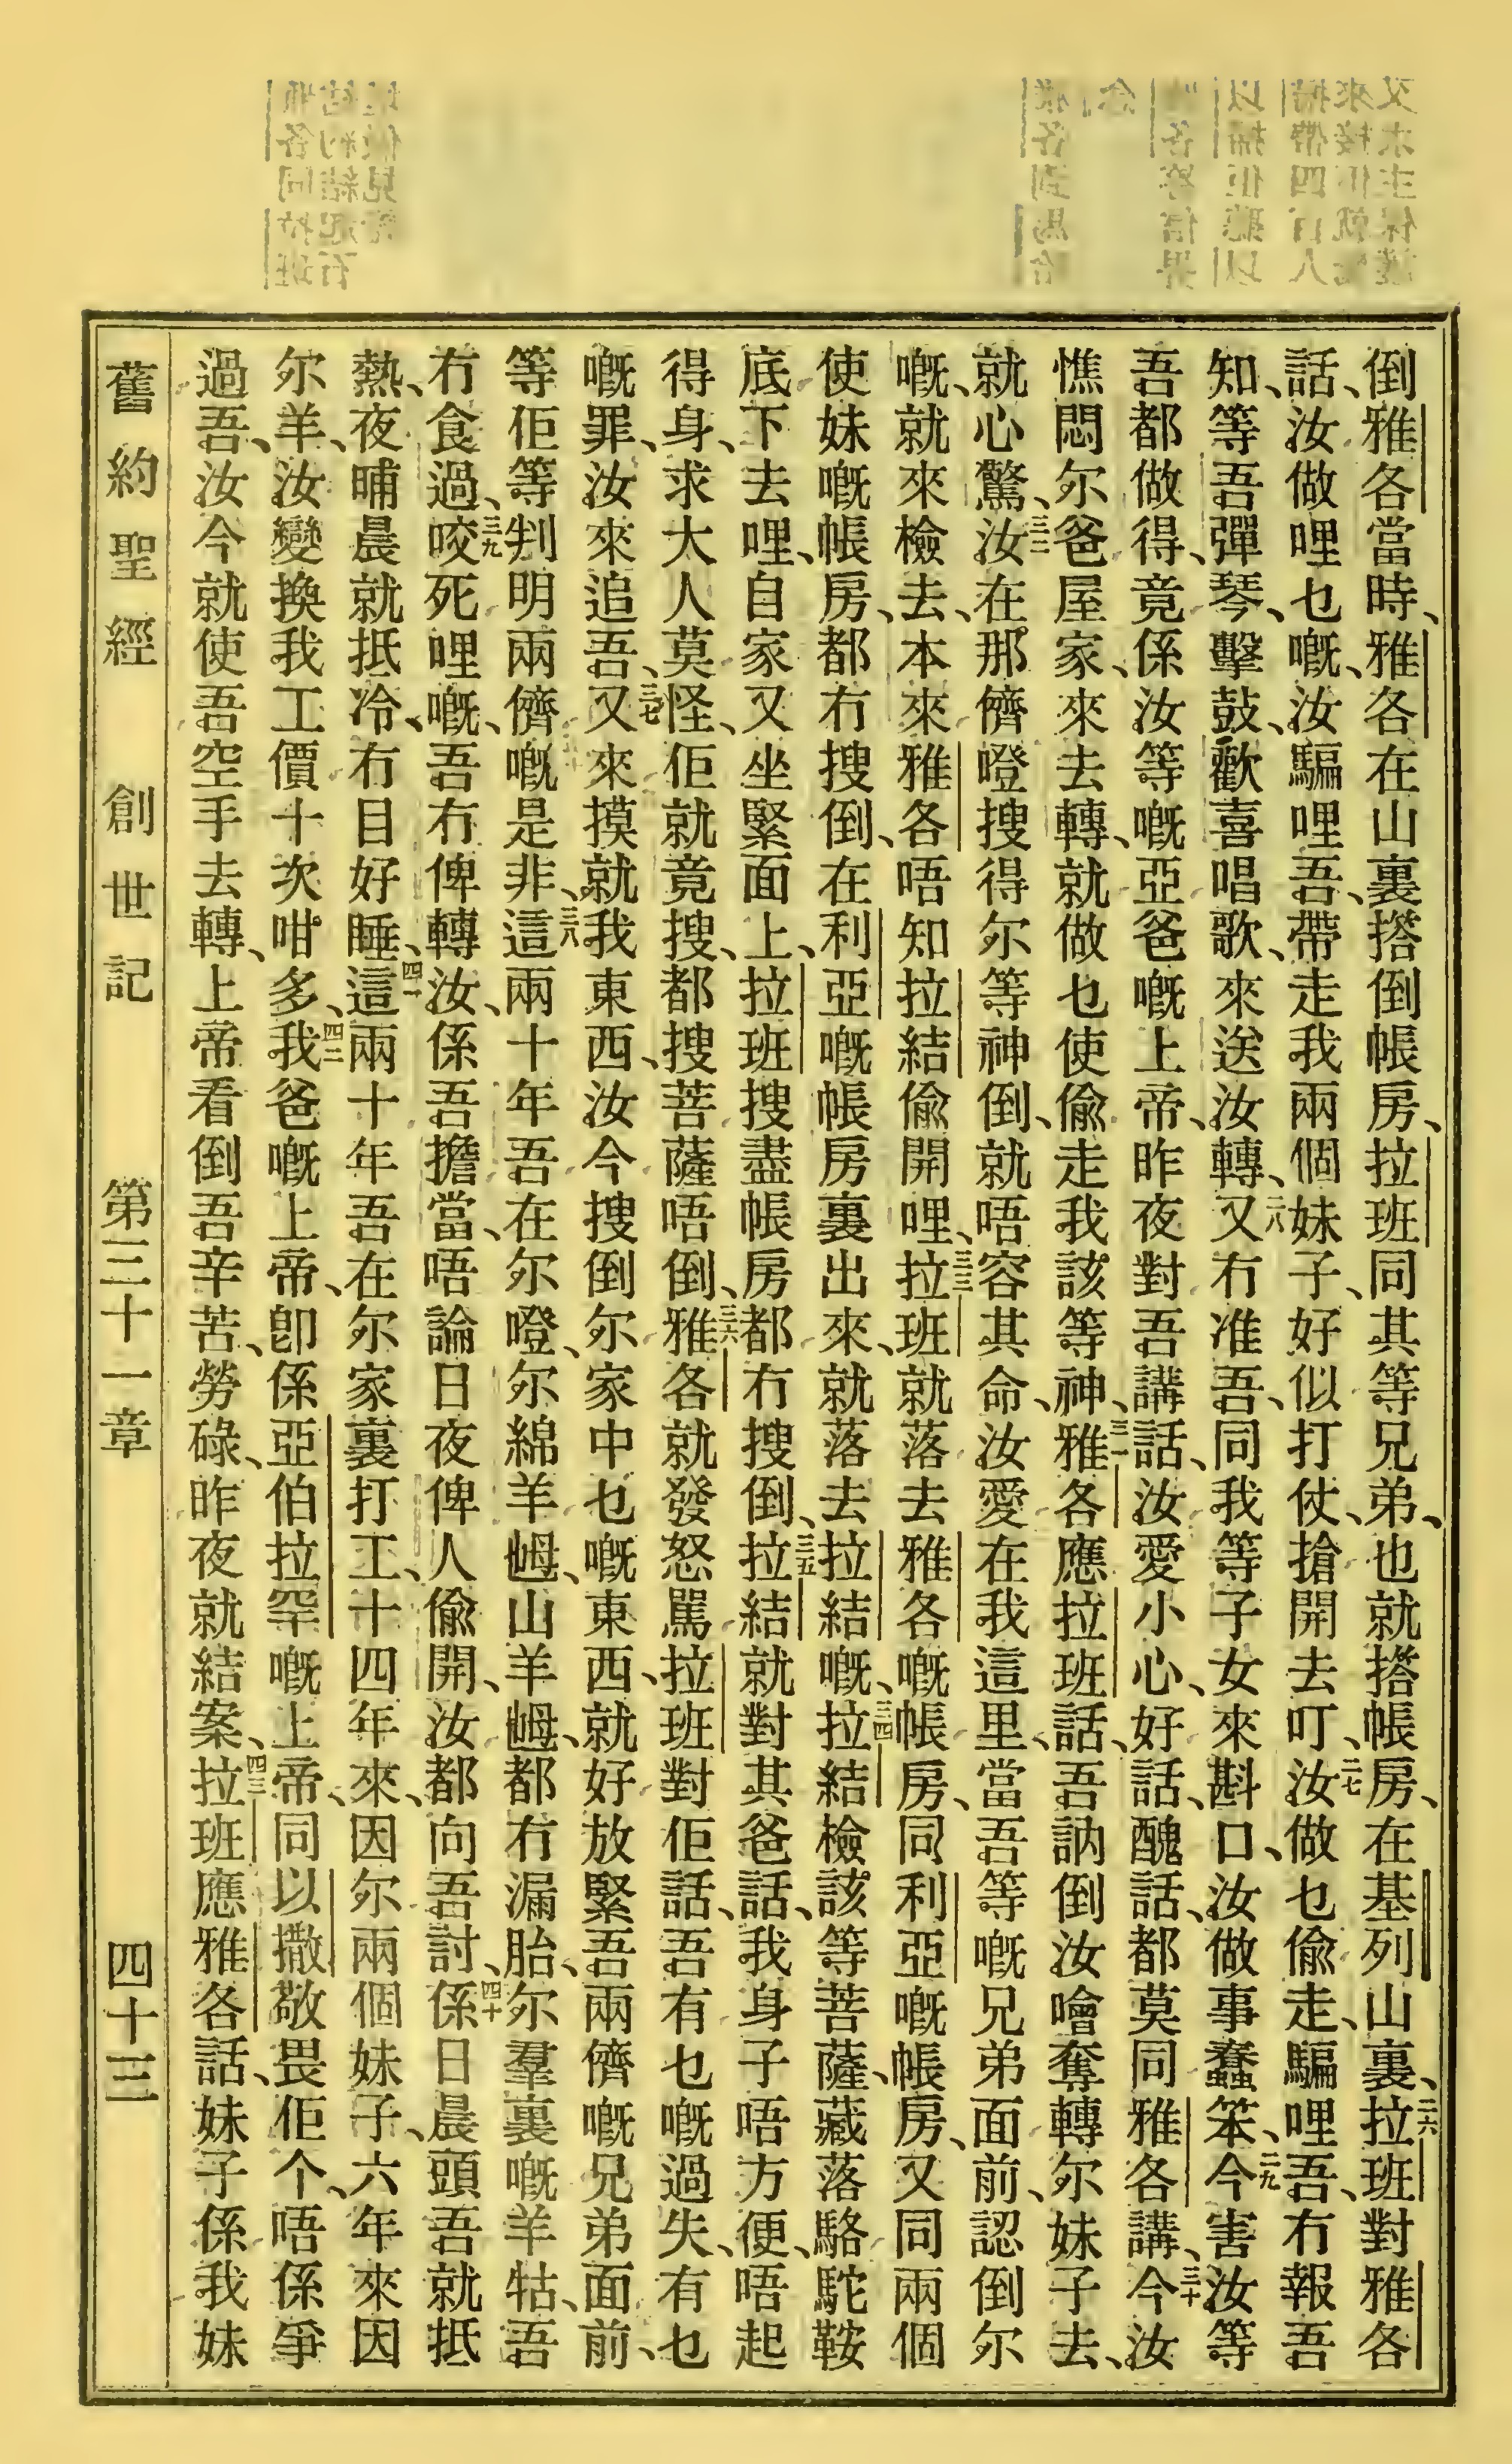 倒雅各當時、雅各在山裏搭倒帳房、拉班同其等兄弟、也就搭帳房、在基列山裏、二六拉班對雅各
話、汝做哩乜嘅、汝騙哩吾、帶走我兩個妹子、好似打仗、搶開去叮、二七汝做乜偷走、騙哩吾、冇報吾
知、等吾彈琴、擊鼓、歡喜唱歌、來送汝轉、二八又冇准吾、同我等子女來斟口、汝做事蠢笨、二九今害汝等
吾都做得、竟係汝等嘅亞爸嘅上帝、昨夜對吾講話、汝愛小心、好話、醜話、都莫同雅各講、三十今汝
憔悶尔爸屋家、來去轉、就做乜使偷走我該等神、三一雅各應拉班話、吾訥倒汝噲奪轉尔妹子去、
就心驚、三二汝在那儕嶝搜得尔等神倒、就唔容其命、汝愛在我這里、當吾等嘅兄弟面前、認倒尔
嘅、就來檢去、本來雅各唔知拉結偷開哩、三三拉班就落去雅各嘅帳房、同利亞嘅帳房、又同兩個
使妹嘅帳房、都冇搜倒、在利亞嘅帳房裏出來、就落去拉結嘅、三四拉結檢該等菩薩、藏落駱駝鞍
底下去哩、自家又坐緊面上、拉班搜盡帳房都冇搜倒、三五拉結就對其爸話、我身子唔方便、唔起
得身、求大人莫怪、佢就竟搜、都搜菩薩唔倒、三六雅各就發怒駡拉班對佢話、吾有乜嘅過失、有乜
嘅罪、汝來追吾、三七又來摸就我東西、汝今搜倒尔家中乜嘅東西、就好放緊吾兩儕嘅兄弟面前、
等佢等判明兩儕嘅是非、三八這兩十年吾在尔嶝、尔綿羊𡜵、山羊𡜵、都冇漏胎、尔羣裏嘅羊牯、吾
冇食過、三九咬死哩嘅、吾冇俾轉汝、係吾擔當、唔論日夜俾人偷開、汝都向吾討、四十係日晨頭吾就抵
熱、夜晡晨就抵冷、冇目好睡、四一這兩十年吾在尔家裏打工、十四年來、因尔兩個妹子、六年來因
尔羊、汝變換我工價十次咁多、四二我爸嘅上帝、卽係亞伯拉罕嘅上帝、同以撒敬畏佢个、唔係爭
過吾、汝今就使吾空手去轉、上帝看倒吾辛苦、勞碌、昨夜就結案、四三拉班應雅各話、妹子係我妹
舊約聖經　創世記　第三十一章　四十三